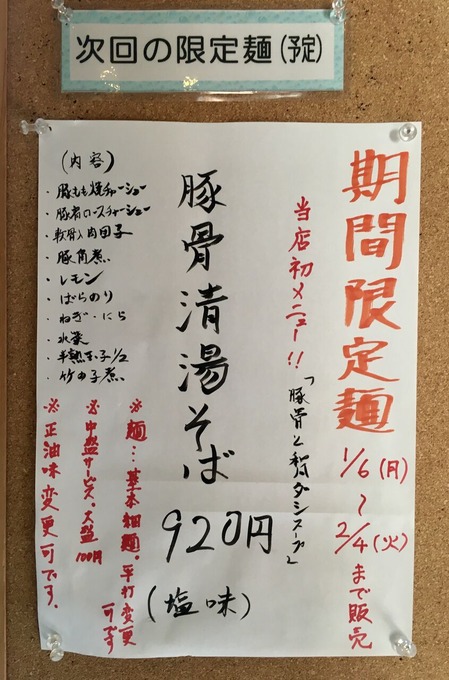 次回の限定麺(予定)
期間限定麺
1/6(月)〜2/4(火)まで販売
当店初メニュー!!
「豚骨と和ダシスープ」
豚骨清湯そば
920円
(塩味)
(内容)
・豚もも焼チャーシュー
・豚肩ロースチャーシュー
・軟骨入肉団子
・豚角煮
・レモン
・ばらのり
・ねぎ・にら
・水菜
・半熟玉子1/2
・竹の子煮
※麺…基本細麺。平打変更可です
※中盛サービス。大盛100円
※正油味変更可です。